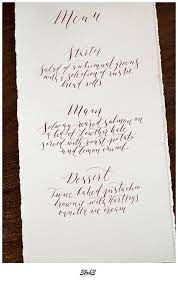 Menu
Starter
Salad of autumnal greens
with a selection of rustic
bread rolls
Main
seared salmon on
a bed of kale
served with roast potato
and lemon
Dessert
Twice baked pistachio
brownie with Hartleys
vanilla ice cream